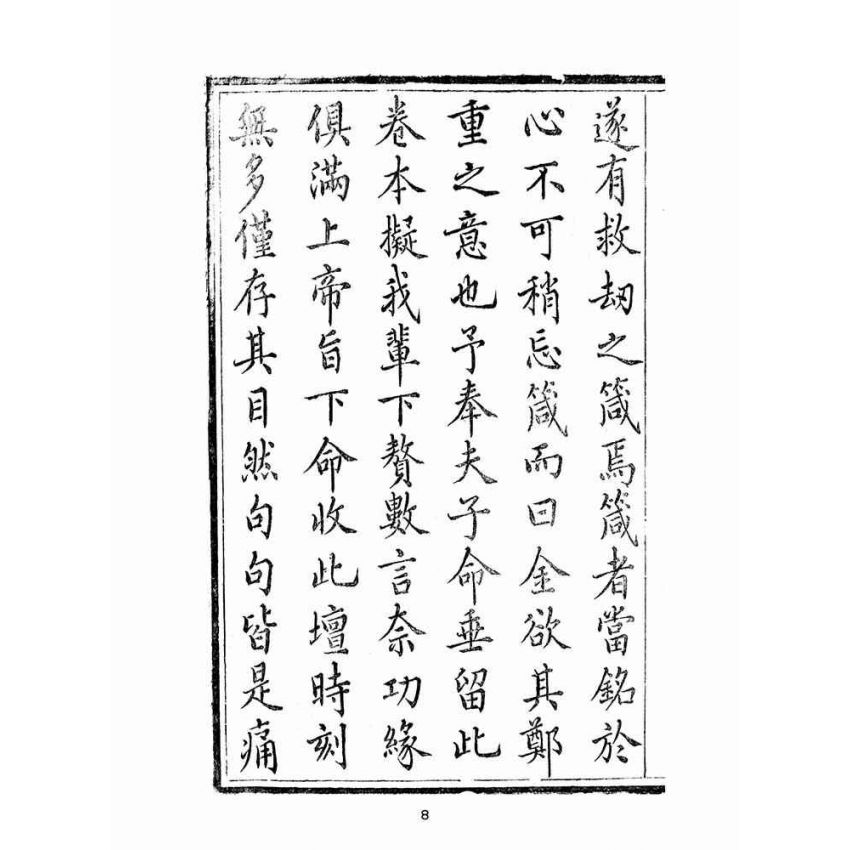 遂有救劫之箴焉箴者當銘於
心不可稍忘箴而曰金欲其鄭
重之意也予奉夫子命垂留此
卷本擬我輩下贅數言奈功緣
俱滿上帝旨下命收此壇時刻
無多僅存其目然句句皆是痛
8